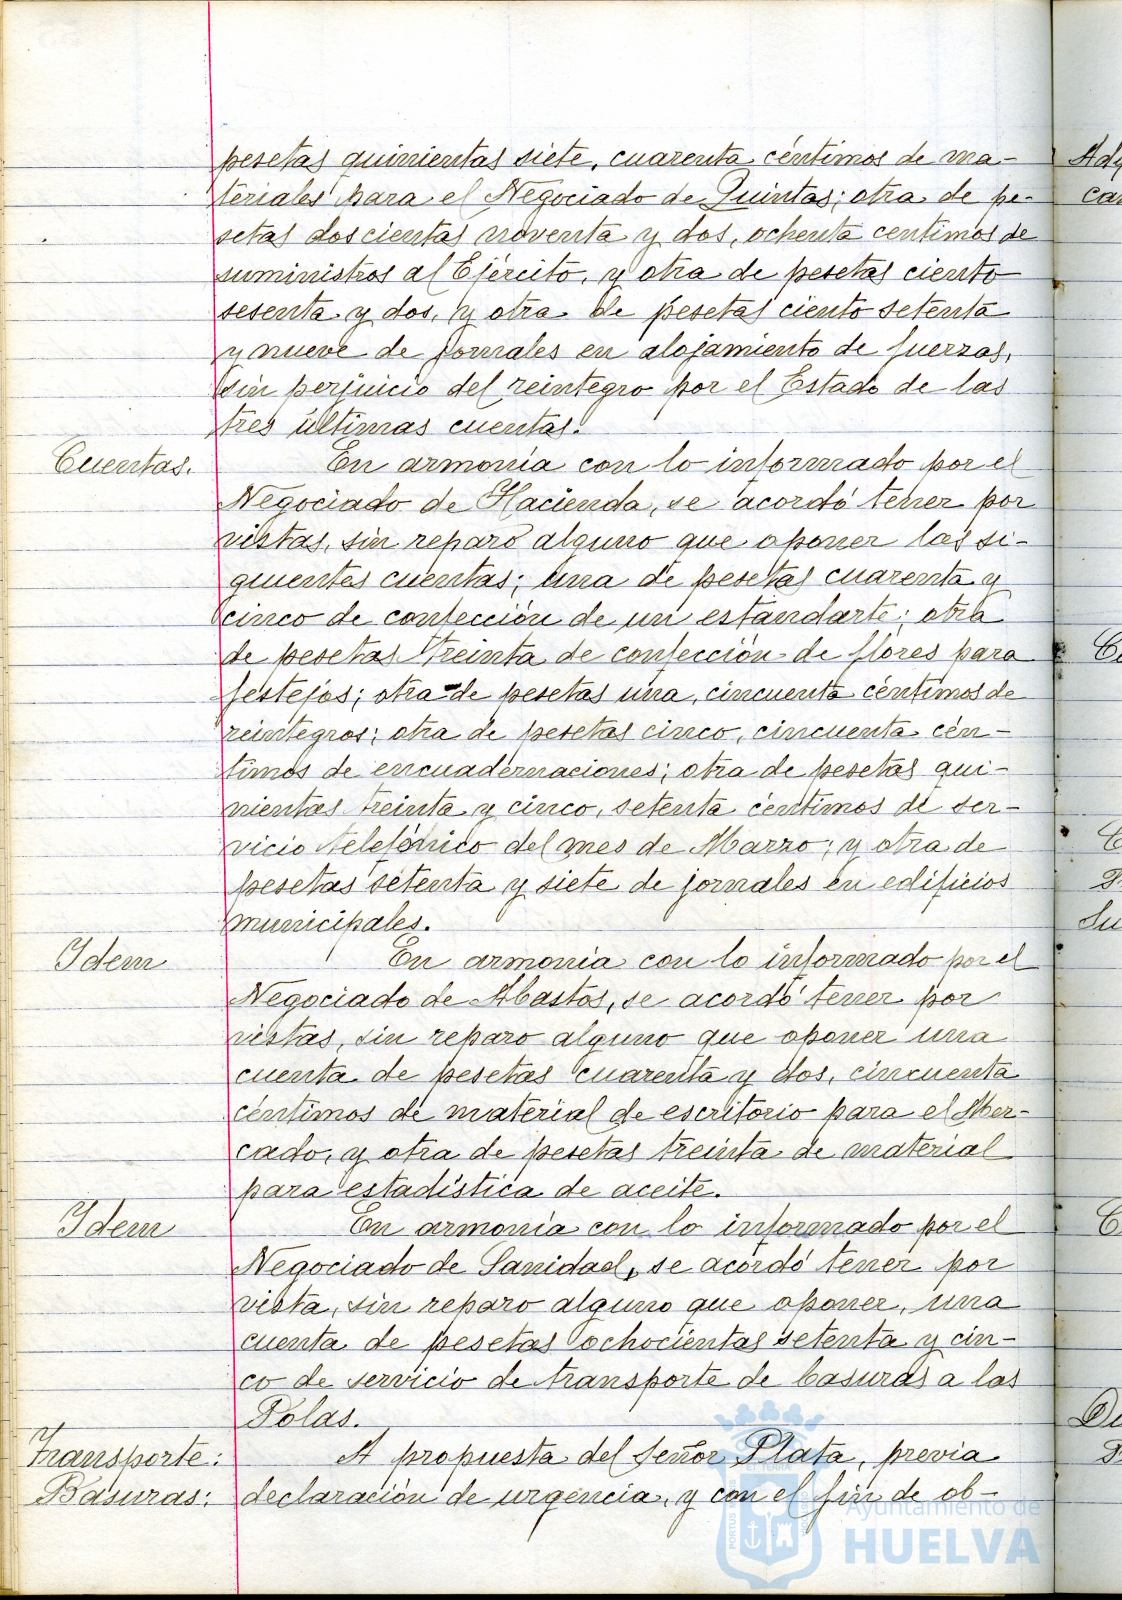 pesetas quinientas siete, cuarenta céntimos de ma-
teriales para el Negociado de Quintas; otra de pe-
setas doscientas noventa y dos, ochenta centimos de
suministros al Ejército, y otra de pesetas ciento
sesenta y dos, y otra de pesetas ciento setenta
y nueve de jornales en alojamiento de fuerzas,
sin perjuicio del reintegro por el Estado de las
tres últimas cuentas.
Cuentas. En armonía con lo informado por el
Negociado de Hacienda, se acordó tener por
vistas, sin reparo alguno que oponer las si-
guientes cuentas; una de pesetas cuarenta y
cinco de confección de un estandarte; otra
de pesetas treinta de confección de flores para
festejos; otra de pesetas una, cincuenta céntimos de
reintegros; otra de pesetas cinco, cincuenta cén-
timos de encuadernaciones; otra de pesetas qui-
nientas treinta y cinco, setenta céntimos de ser-
vicio telefónico del mes de Marzo; y otra de
pesetas setenta y siete de jornales en edificios
municipales.
Idem En armonia con lo informado por el
Negociado de Abastos, se acordó tener por
vistas, sin reparo alguno que oponer una
cuenta de pesetas cuarenta y dos, cincuenta
céntimos de material de escritorio para el Mer-
cado, y otra de pesetas treinta de material
para estadística de aceite.
Idem En armonía con lo informado por el
Negociado de Sanidad, se acordó tener por
vista, sin reparo alguno que oponer, una
cuenta de pesetas ochocientas setenta y cin-
co de servicio de transporte de basuras a las
Polas.
Transporte: A propuesta del Señor Plata, previa
Basuras: declaración de urgencia, y con el fin de ob-
Ayuntamiento de
HUELVA